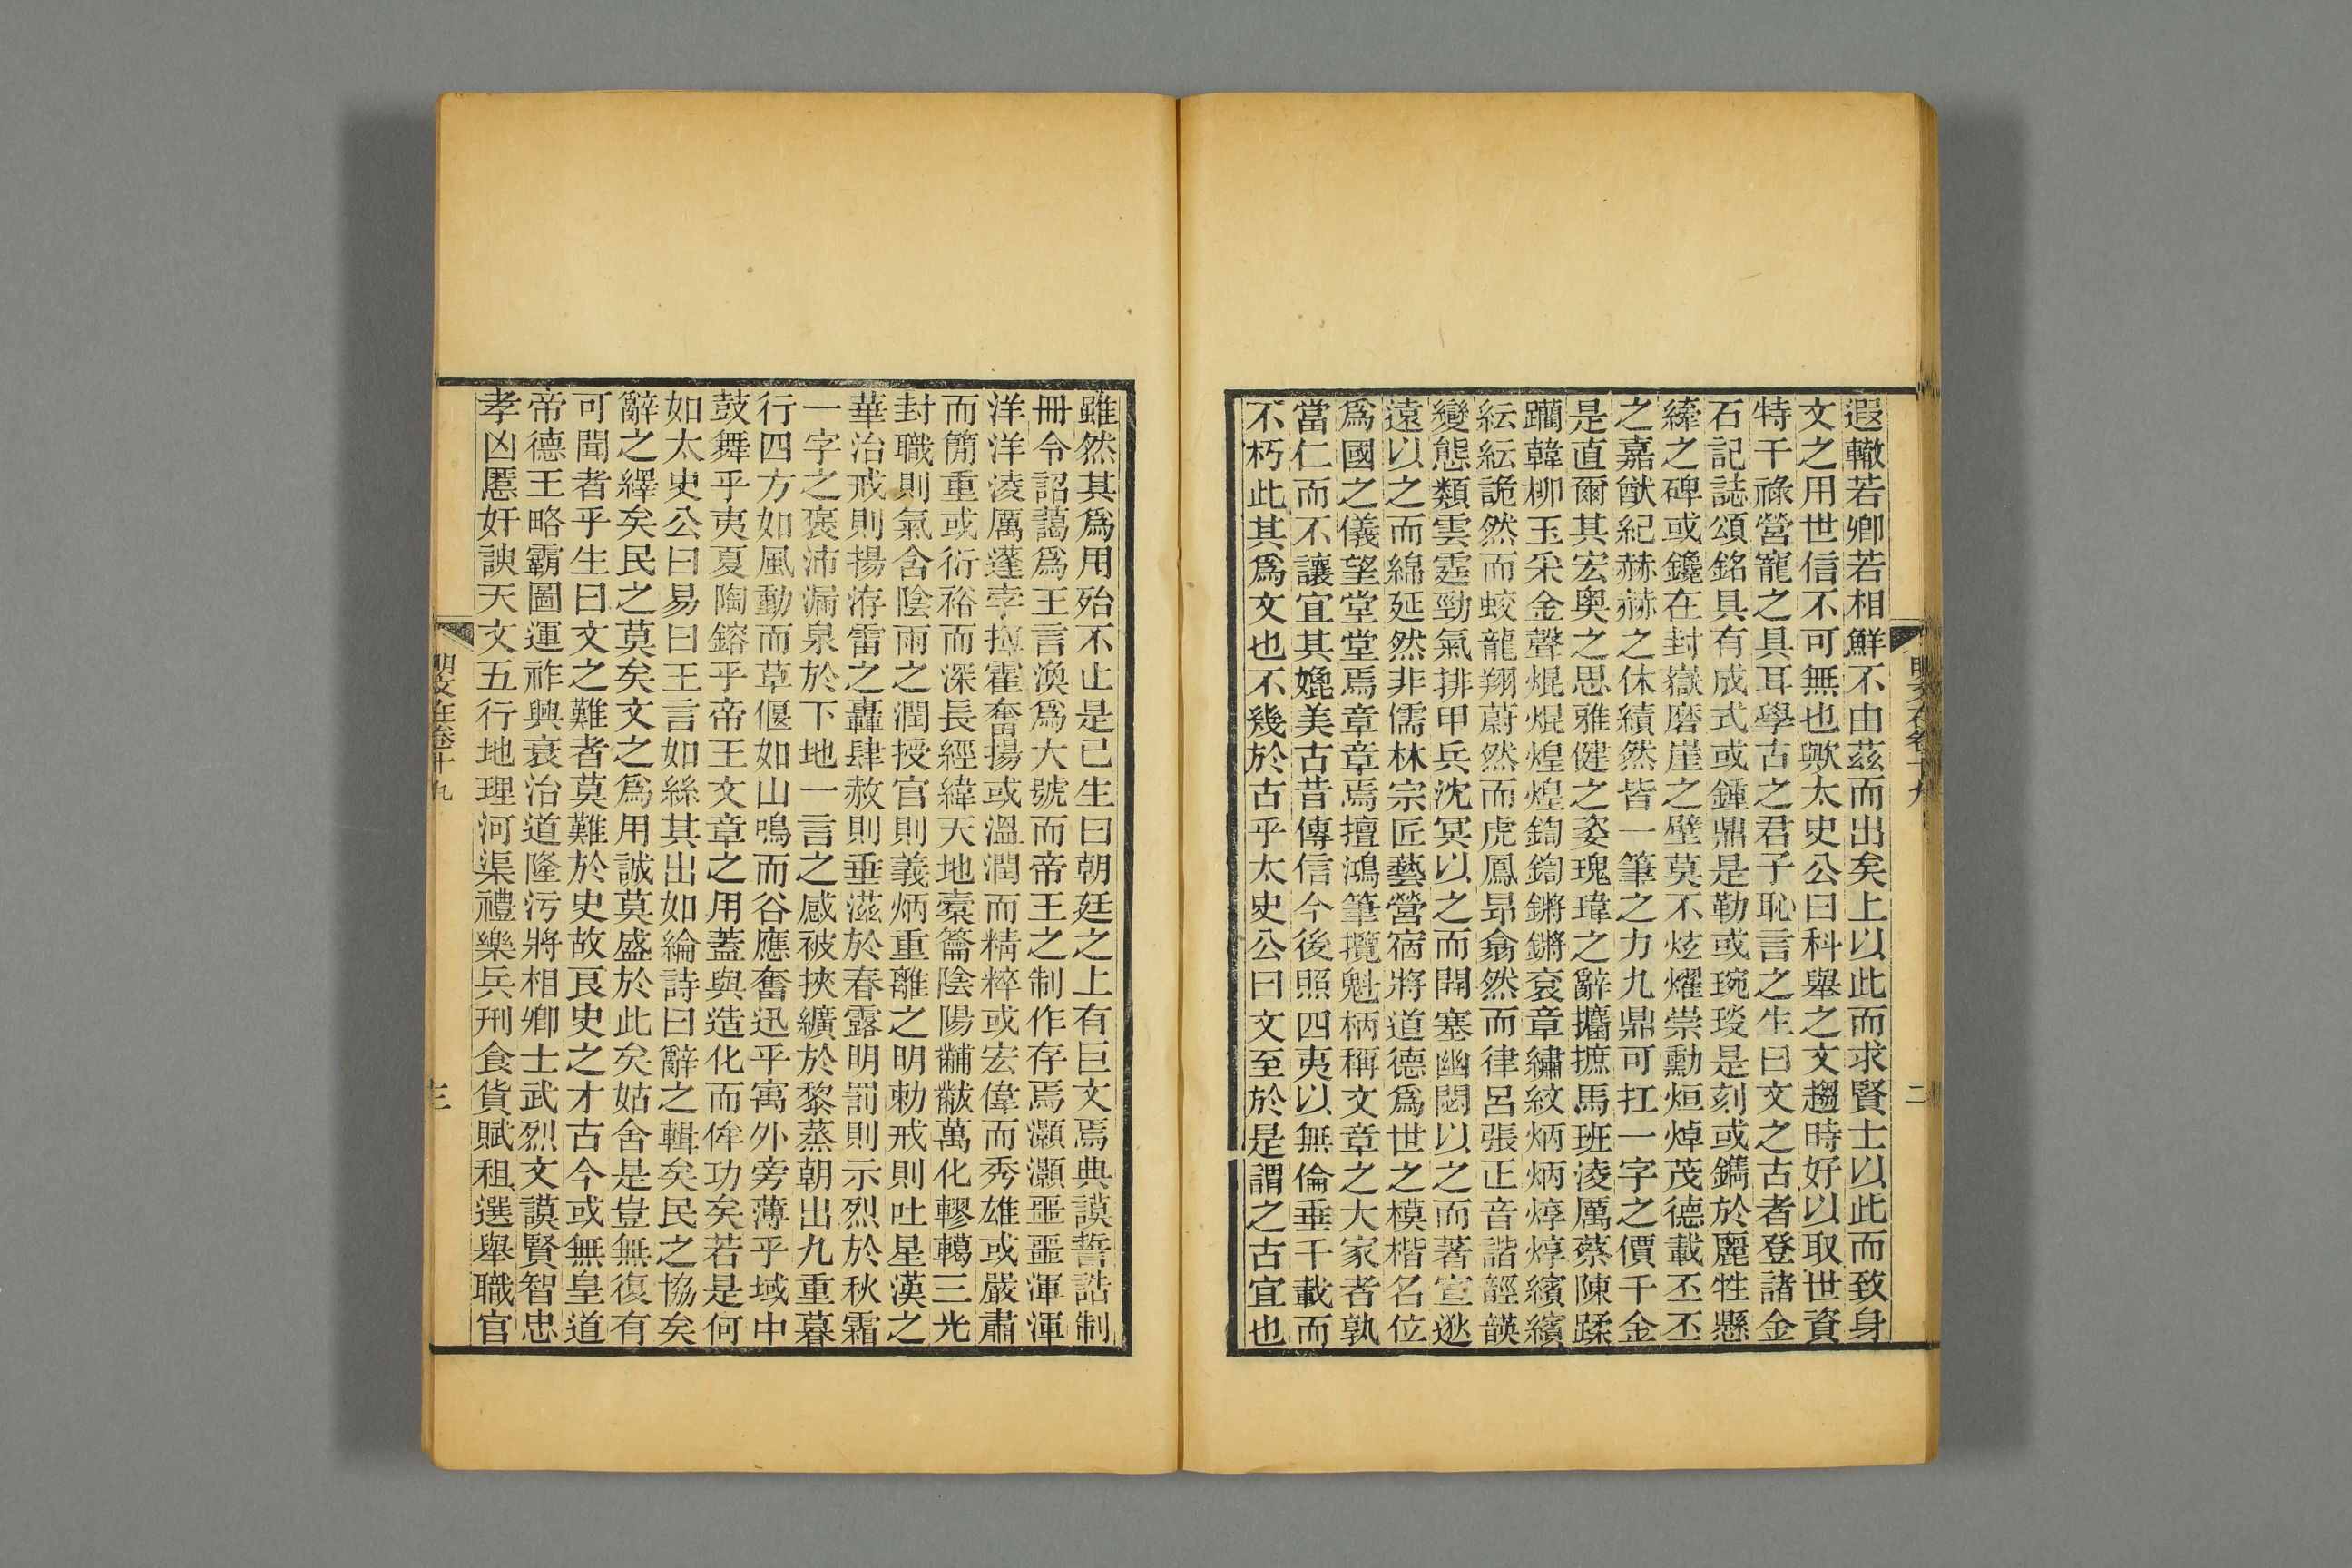 遐轍若卿若相鮮不由茲而出矣上以此而求賢士以此而致身
文之用世信不可無也歟太史公曰科舉之文趨時好以取世資
特干祿營寵之具耳學古之君子恥言之生曰文之古者登諸金
石記誌頌銘具有成式或鍾鼎是勒或琬琰是刻或鐫於麗牲懸
繂之碑或鑱在封嶽磨崖之壁莫不炫燿崇勳烜焯茂德載丕丕
之嘉猷紀赫赫之休績然皆一筆之力九鼎可扛一字之價千金
是直爾其宏奧之思雅健之姿瑰瑋之辭攟摭馬班淩厲蔡陳蹂
躪韓柳玉采金聲焜焜煌煌鍧鍧鏘鏘袞章繡紋炳炳焞焞繽繽
紜紜詭然而蛟龍翔蔚然而虎鳳昻翕然而律呂張正音諧䪫韺
變態類雲霆勁氣排甲兵沈冥以之而開塞幽閟以之而著宣逖
遠以之而綿延然非儒林宗匠藝營宿將道德爲世之模楷名位
爲國之儀望堂堂焉章章焉擅鴻筆攬魁柄稱文章之大家者孰
當仁而不讓宜其媲美古昔傳信今後照四夷以無倫垂千載而
不朽此其爲文也不幾於古乎太史公曰文至於是謂之古宜也
明文在卷十九 二
雖然其爲用殆不止是已生曰朝廷之上有巨文焉典謨誓誥制
冊令詔藹爲王言渙爲大號而帝王之制作存焉灝灝噩噩渾渾
洋洋淩厲蓬孛揮霍奮揚或溫潤而精粹或宏偉而秀雄或嚴肅
而簡重或衍裕而深長經緯天地橐籥陰陽黼黻萬化轇轕三光
封職則氣含陰雨之潤授官則義炳重離之明勅戒則吐星漢之
華治戒則揚洊雷之轟肆赦則垂滋於春露明罰則示烈於秋霜
一字之褒沛漏泉於下地一言之感被挾纊於黎蒸朝出九重暮
行四方如風動而草偃如山鳴而谷應奮迅乎寓外旁薄乎域中
鼓舞乎夷夏陶鎔乎帝王文章之用蓋與造化而侔功矣若是何
如太史公曰易曰王言如絲其出如綸詩曰辭之輯矣民之協矣
辭之繹矣民之莫矣文之爲用誠莫盛於此矣姑舍是豈無復有
可聞者乎生曰文之難者莫難於史故良史之才古今或無皇道
帝德王略霸圖運祚興衰治道隆污將相卿士武烈文謨賢智忠
孝凶慝奸諛天文五行地理河渠禮樂兵刑食貨賦租選舉職官
明文在卷十九 三